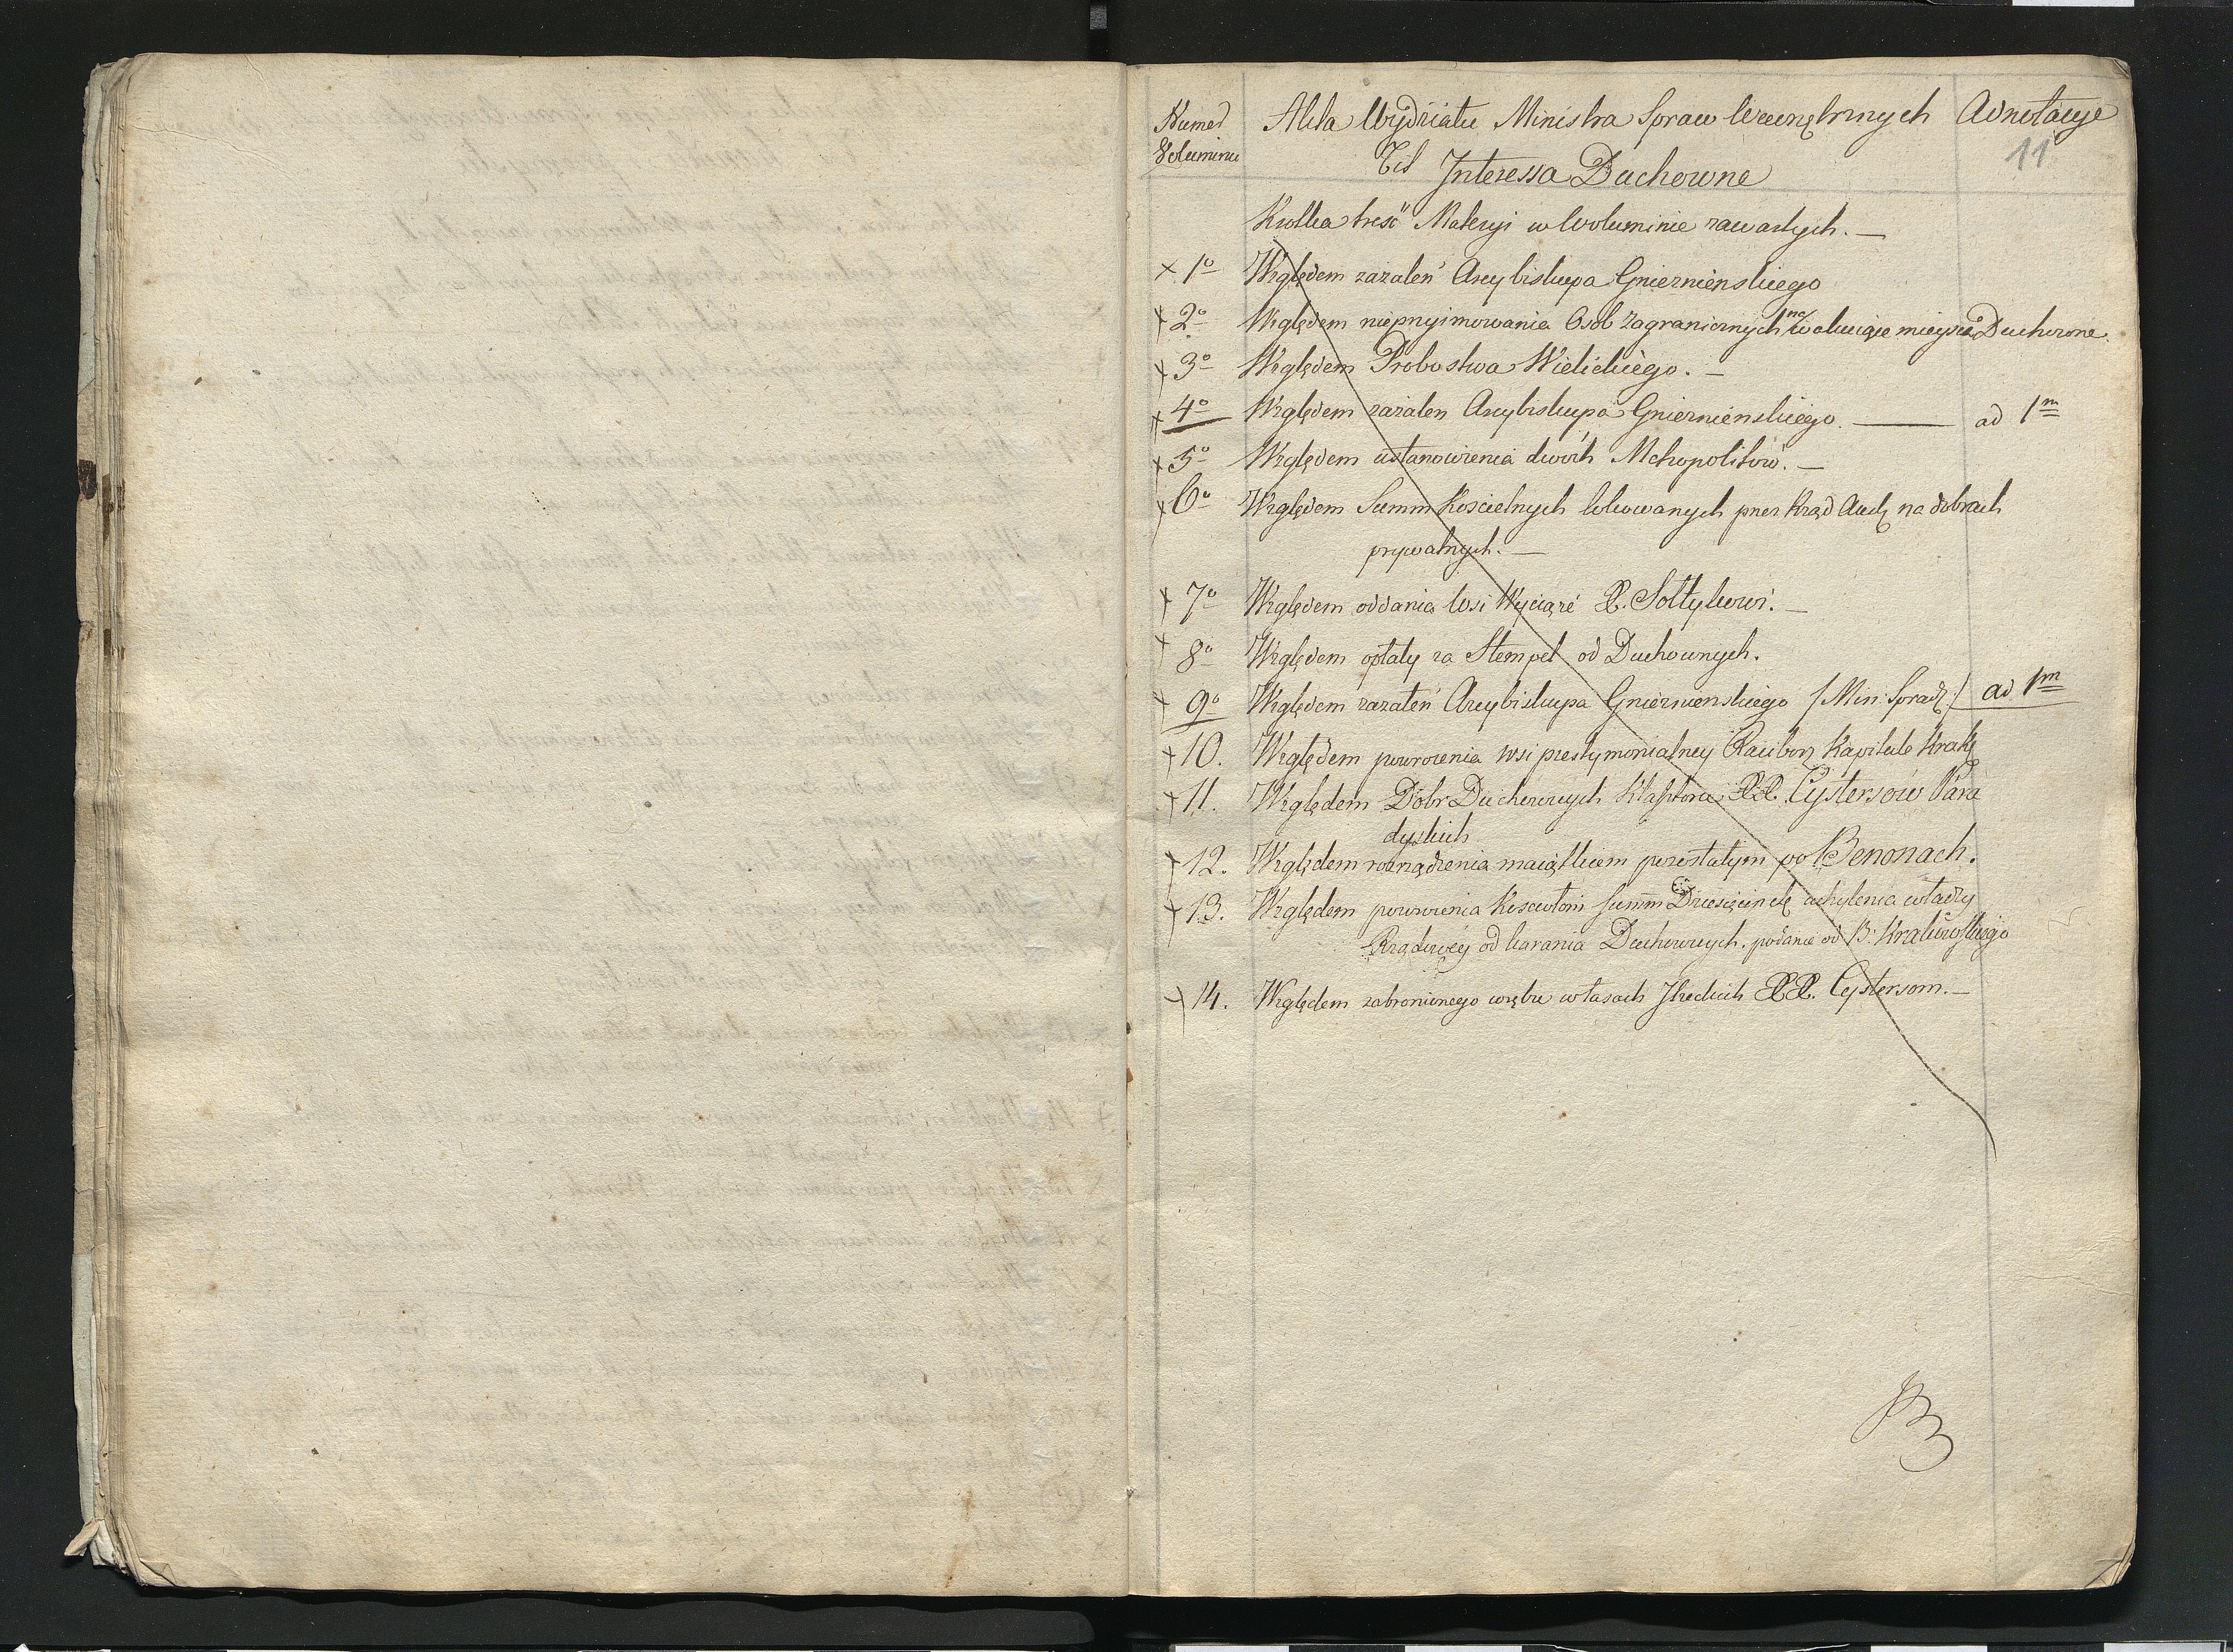 Numer Akta Wydziału Ministra Spraw Wewnętrznych Adnotacye
Voluminu Tit Interessa Duchowne 11
Krotka tresć Materyi w Woluminie zawartych. —
x 1o Względem zażaleń Arcybiskupa Gnieznienskiego
x 2o Względem nieprzyimowania Osob Zagranicznych na wakuiące mieysca Duchowne.
x 3o Względem Probostwa Wielickiego. —
x 4o Względem zażalen Arcybiskupa Gnieznienskiego. — ad 1m
x 5o Względem ustanowienia dwóch Metropolitów. —
x 6o Względem Summ Koscielnych lokowanych przez Rząd Austr na dobrach
prywatnych. —
x 7o Względem oddania Wsi Wyciąże X. Sołtykowi. —
x 8o Względem opłaty za Stempel od Duchownych.
x 9o Względem zażaleń Arcybiskupa Gnieznienskiego /Min: Spraw:/ ad 1m
x 10. Względem powrocenia wsi prestymonialney Racibor Kapitule Krak
x 11. Względem Dobr Duchownych Klasztoru XX. Cystersów Para
dyskich
x 12. Względem rozrządzenia maiątkiem pozostałym po Benonach.
x 13. Względem powrocenia Kosciołom summ Dziesięcin etc uchylenia władzy
Rządowey od karania Duchownych. podane od B: Krakowskiego
x 14. Względem zabronionego wrębu w lasach Iłzeckich XX. Cystersom. —